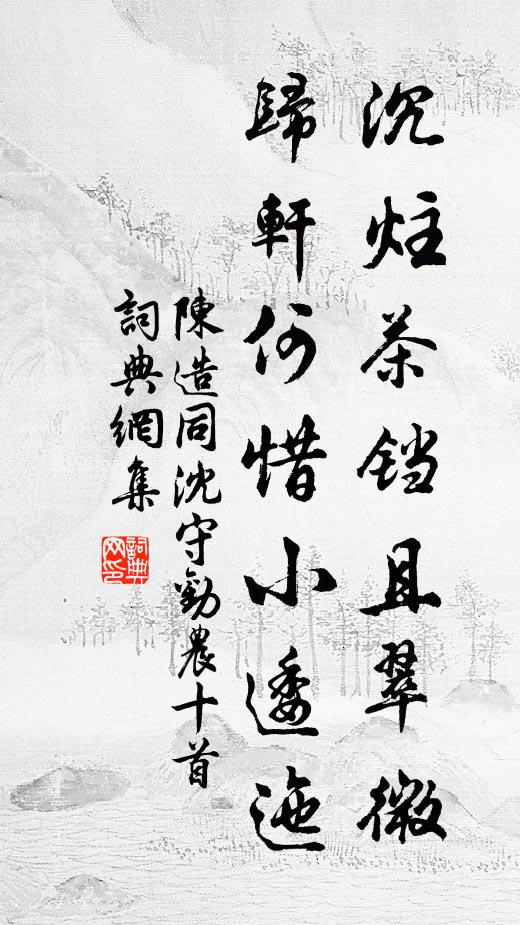 沉炷茶铛且翠微
歸軒何惜小逶迤
陳造同沈守勸農十首
詞典網集
詞典网印